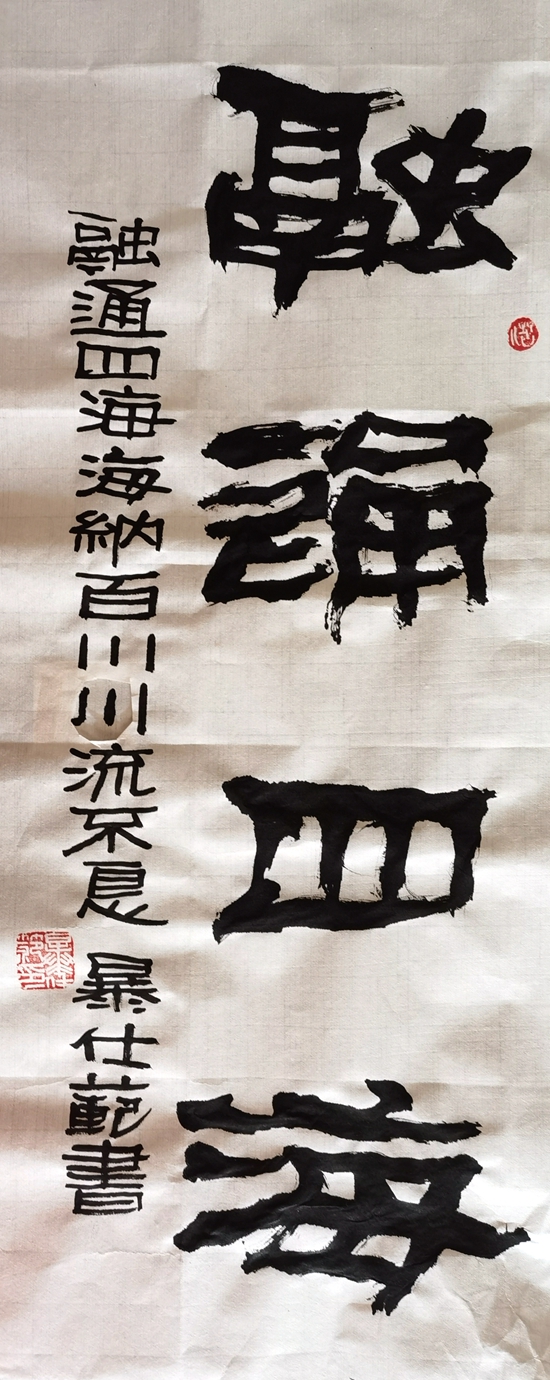 融通四海
融通四海海納百川川流不息 暴仕範書